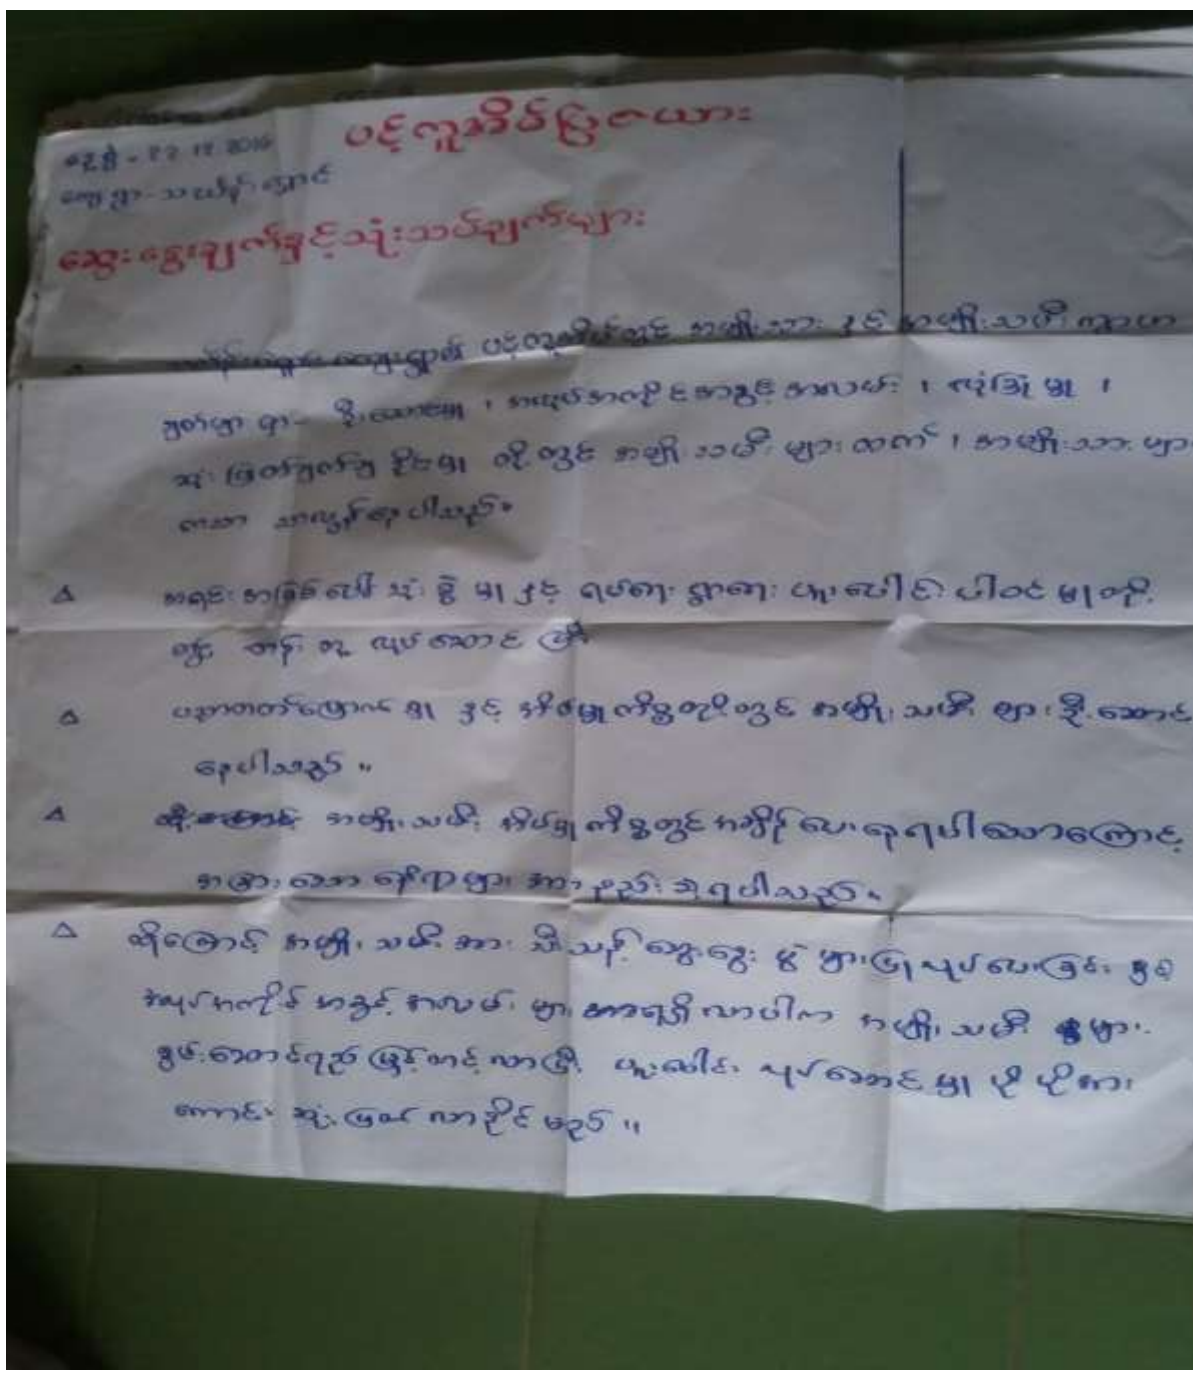 ပင့်ကူအိမ်ပြဇယား
နေ့စွဲ - 2016
ကျေးရွာ - သယိန်ချောင်
ဆွေးနွေးချက်နှင့်သုံးသပ်ချက်များ
ကျေးရွာ၏ ပင့်ကူအိမ်တွင် အမျိုးသား နှင့် အမျိုးသမီး ကွာဟ
ချက်မှာ ရှာ- ဦးဆောင်မှု ၊ အရပ်အကိုင်အခွင့်အလမ်း ၊ လုံခြုံမှု ၊
ဆုံးဖြတ်ချက်ချနိုင်မှု တို့တွင် အမျိုးသမီးများထက် ၊ အမျိုးသားများ
ကသာ သာလွန်နေပါသည်။
△ အရင်းအမြစ်ပေါ်သုံးစွဲမှု နှင့် ရပ်ရေးရွာရေး ပူးပေါင်းပါဝင်မှုတို့
တွင် တန်းတူ လုပ်ဆောင်ပြီး
△ ပညာတတ်မြောက်မှု နှင့် အိမ်မှုကိစ္စတို့တွင် အမျိုးသမီးများ ဦးဆောင်
နေပါသည် ။
△ ထို့ကြောင့် အမျိုးသမီး အိမ်မှုကိစ္စတွင် အချိန်ပေးနေရပါသောကြောင့်
အခြားသော နေရာများအား နည်းသွားရပါသည်။
△ ထို့ကြောင့် အမျိုးသမီးအား သီးသန့် ဆွေးနွေးပွဲများပြုလုပ်ပေးခြင်း နှင့်
အလုပ်အကိုင် အခွင့်အလမ်းများ အားရရှိလာပါက အမျိုးသမီးများ
စွမ်းဆောင်ရည်မြှင့်တင်လာပြီး ပူးပေါင်းလုပ်ဆောင်မှု ပိုပိုအား
ကောင်းဆုံးဖြတ်လာနိုင်မည် ။